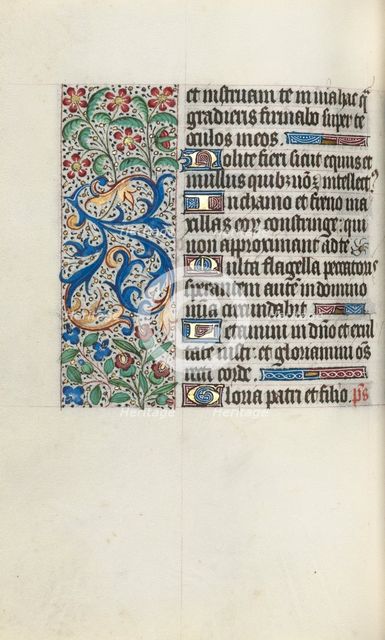 et instruam te in via hac q̄
gradieris firmabo super te
oculos meos.
Nolite fieri sicut equus et
mulus quibz nō ē intellect9
In chamo et freno ma
xillas eoꝝ constringe: qui
non approximant ad te
Multa flagella peccatoris
sperantem aute in domino
mia circundabit.
Letamini in dño et exul
tate iusti: et gloriamini oēs
recti corde.
Gloria patri et filio. ps
heritage
Heritage
Heritage